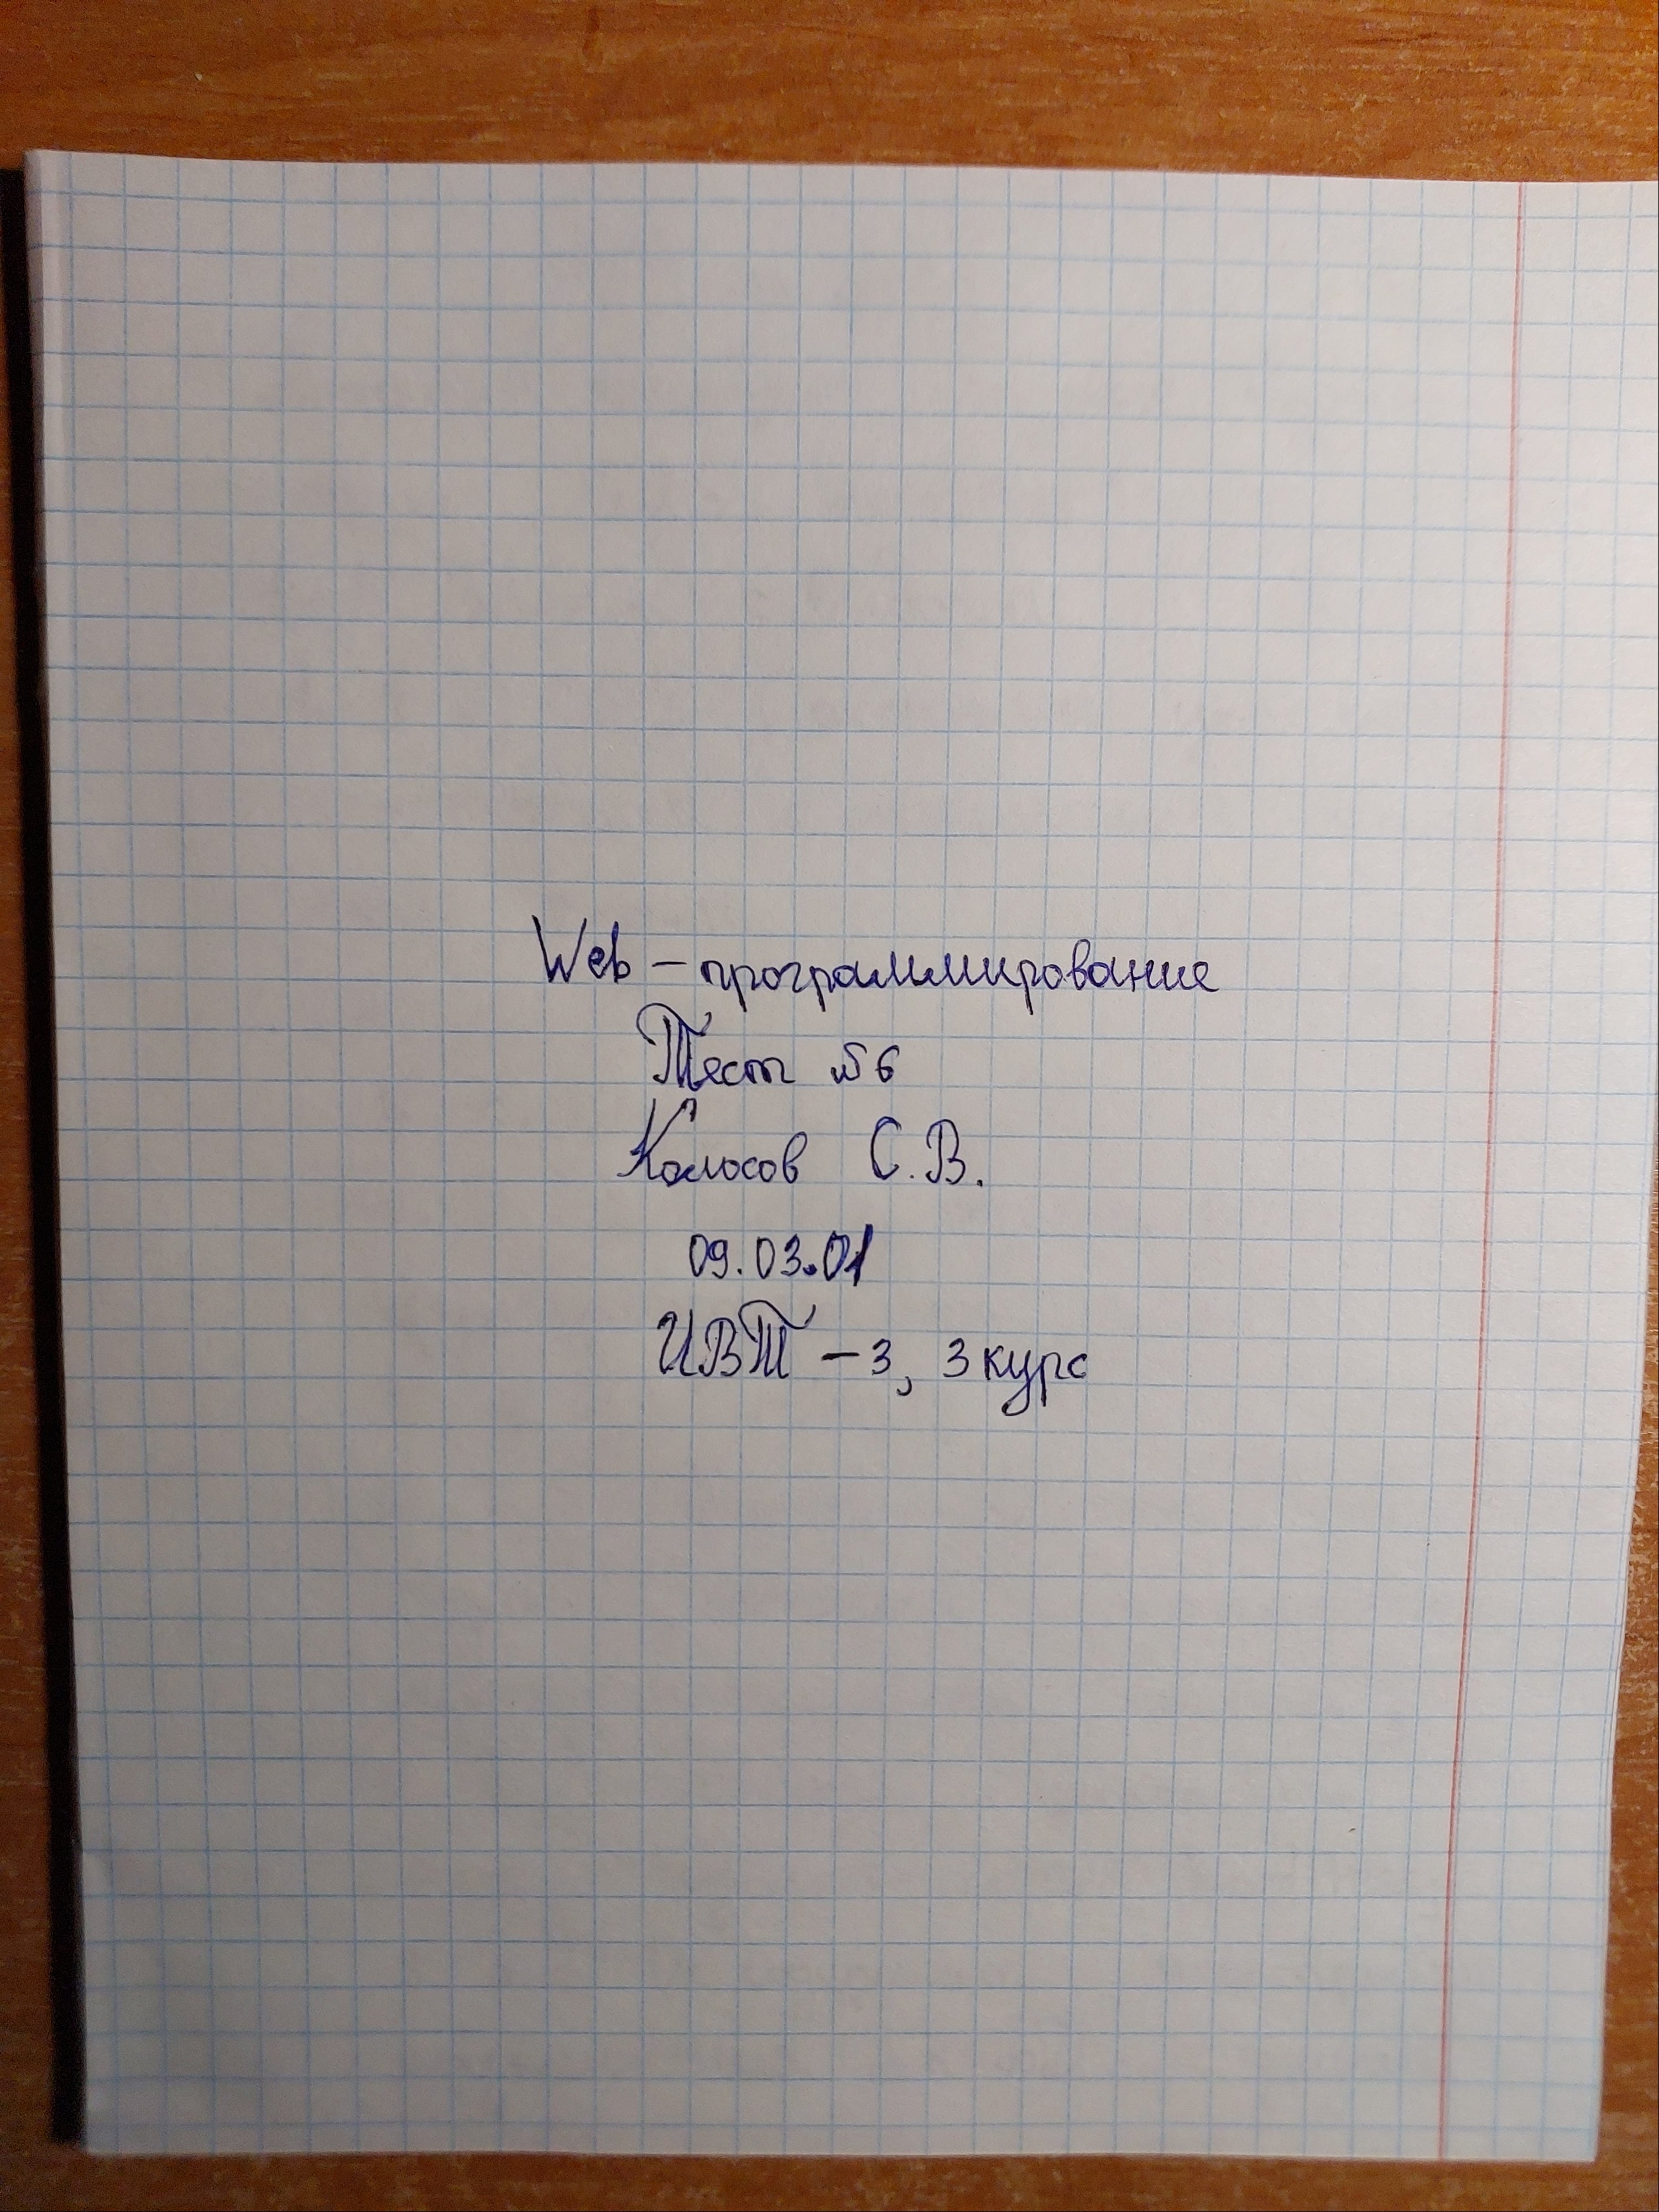 Web - программирование
Тест №6
Колосов С.В.
09.03.01
ИВТ - 3, 3 курс